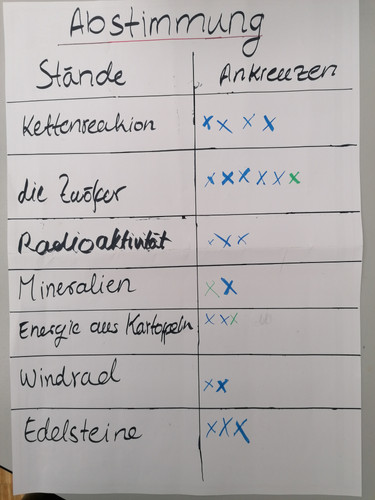 Abstimmung
Stände Ankreuzen
Kettenreakion x x x x
die Zwölfer x x x x x x
Radioaktivität x x x
Mineralien x x
Energie aus Kartoffeln x x x
Windrad x x
Edelsteine x x x